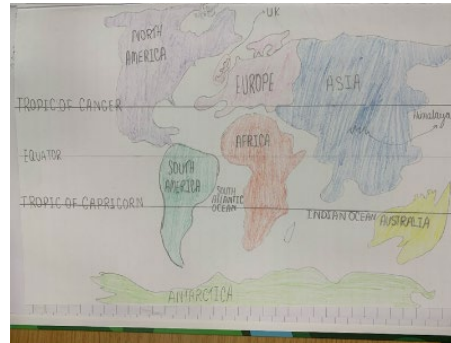 UK
NORTH
AMERICA
EUROPE
ASIA
TROPIC OF CANCER
Himalaya
AFRICA
EQUATOR
SOUTH
AMERICA
SOUTH
ATLANTIC
OCEAN
TROPIC OF CAPRICORN
INDIAN OCEAN
AUSTRALIA
ANTARCTICA